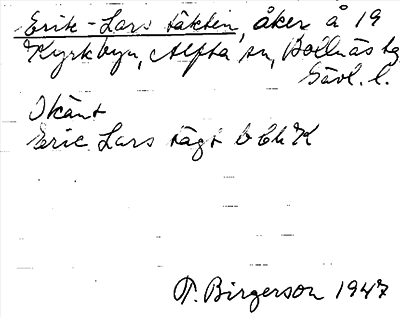 Erik-Lars täkten, åker å 19
Kyrkbyn, Alfta sn, Bollnäs tg
Gävl. l.
Okänt
Eric Lars tägt b Ch K
T. Birgerson 1947